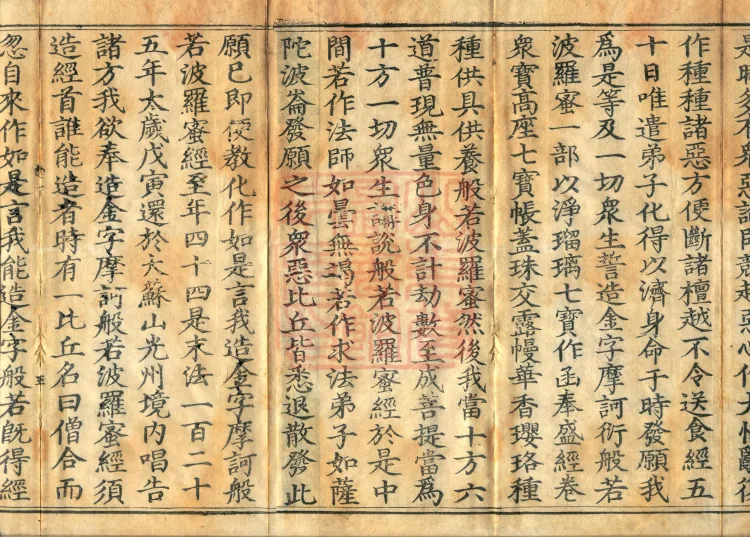 作種種諸惡方便斷諸檀越不令送食經五
十日唯遣弟子化得以濟身命于時發願我
為是等及一切衆生誓造金字摩訶衍般若
波羅蜜一部以淨瑠璃七寶作函奉盛經卷
衆寶高座七寶帳蓋珠交露幔華香瓔珞種
種供具供養般若波羅蜜然後我當十方六
道普現無量色身不計劫數至成菩提當為
十方一切衆生講說般若波羅蜜經於是中
間若作法師如曇無竭若作求法弟子如薩
陀波崙發願之後衆惡比丘皆悉退散發此
願已即便教化作如是言我造金字摩訶般
若波羅蜜經至年四十四是末法一百二十
五年太歲戊寅還於大蘇山光州境內唱告
諸方我欲奉造金字摩訶般若波羅蜜經須
造經首誰能造者時有一比丘名曰僧合而
五
忽自來作如是言我能造金字般若旣得經